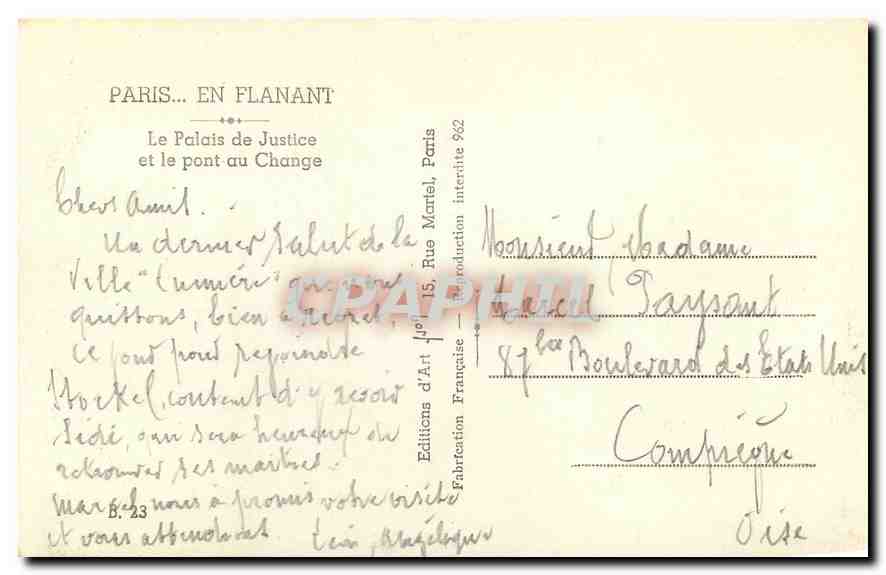 PARIS... EN FLANANT
Le Palais de Justice
et le pont au Change
Chers Amis.
Un dernier salut de la
Ville "Lumière" que nous
quittons, bien à regret,
ce jour pour rejoindre
content d'y revoir
qui sera heureux de
retrouver ses maitres.
Marcel nous à promis votre visite
et vous attendent
B. 23
Editions d'Art 15, Rue Martel, Paris
Fabrication Française — Reproduction interdite 962
CPAPHIL
Monsieur, Madame
Marcel Paysant
87 bis Boulevard des Etats Unis
Compiègne
Oise